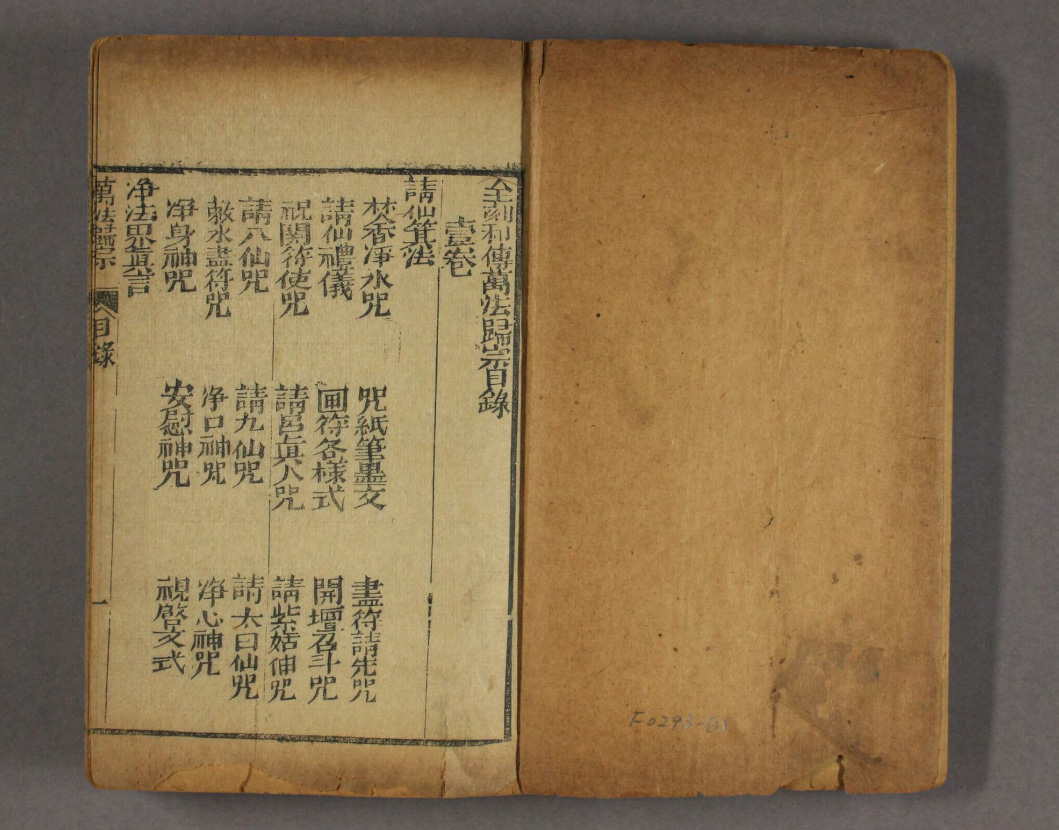 全刻秘傳萬法歸宗目錄
壹卷
請仙箕法
焚香淨水咒
咒紙筆墨文
畫符請先咒
請仙禮儀
畫符各樣式
開壇召斗咒
祝開符使咒
請呂眞人咒
請紫姑伸咒
請八仙咒
請九仙咒
請太白仙咒
敕水畫符咒
淨口神咒
淨心神咒
淨身神咒
安慰神咒
視啓文式
淨法界眞言
萬法歸宗
目錄
一
F0293-